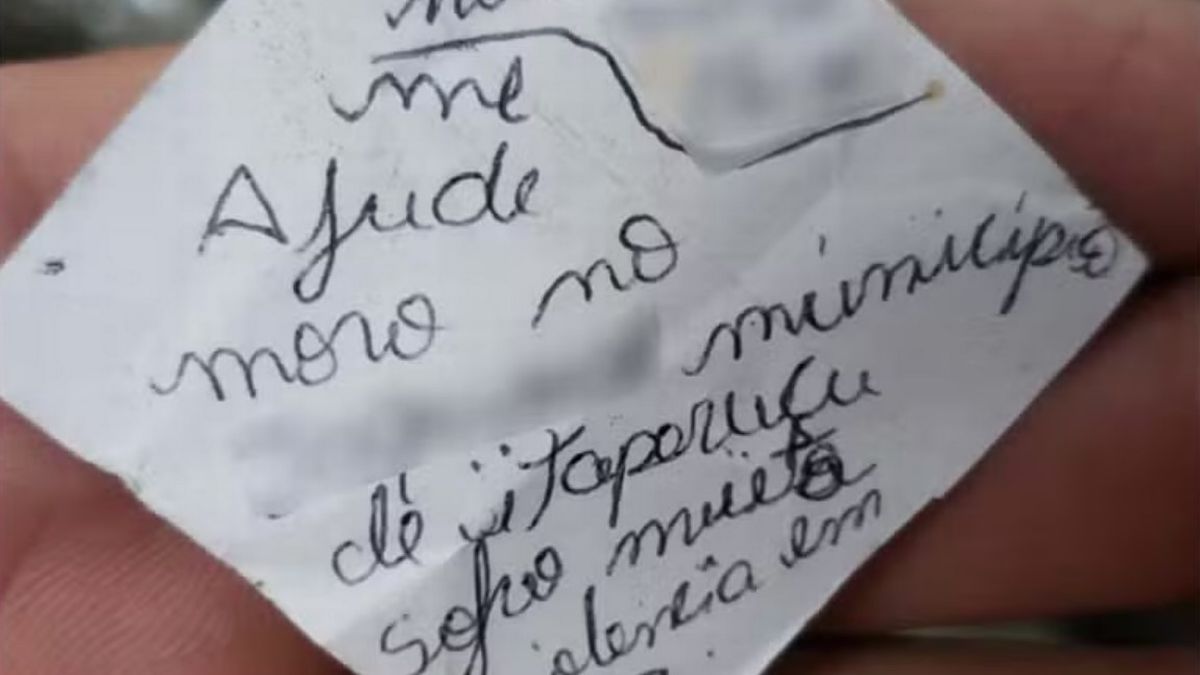 me
Ajude
moro no
municipio
de itaporucu
sofro muito
dencia em